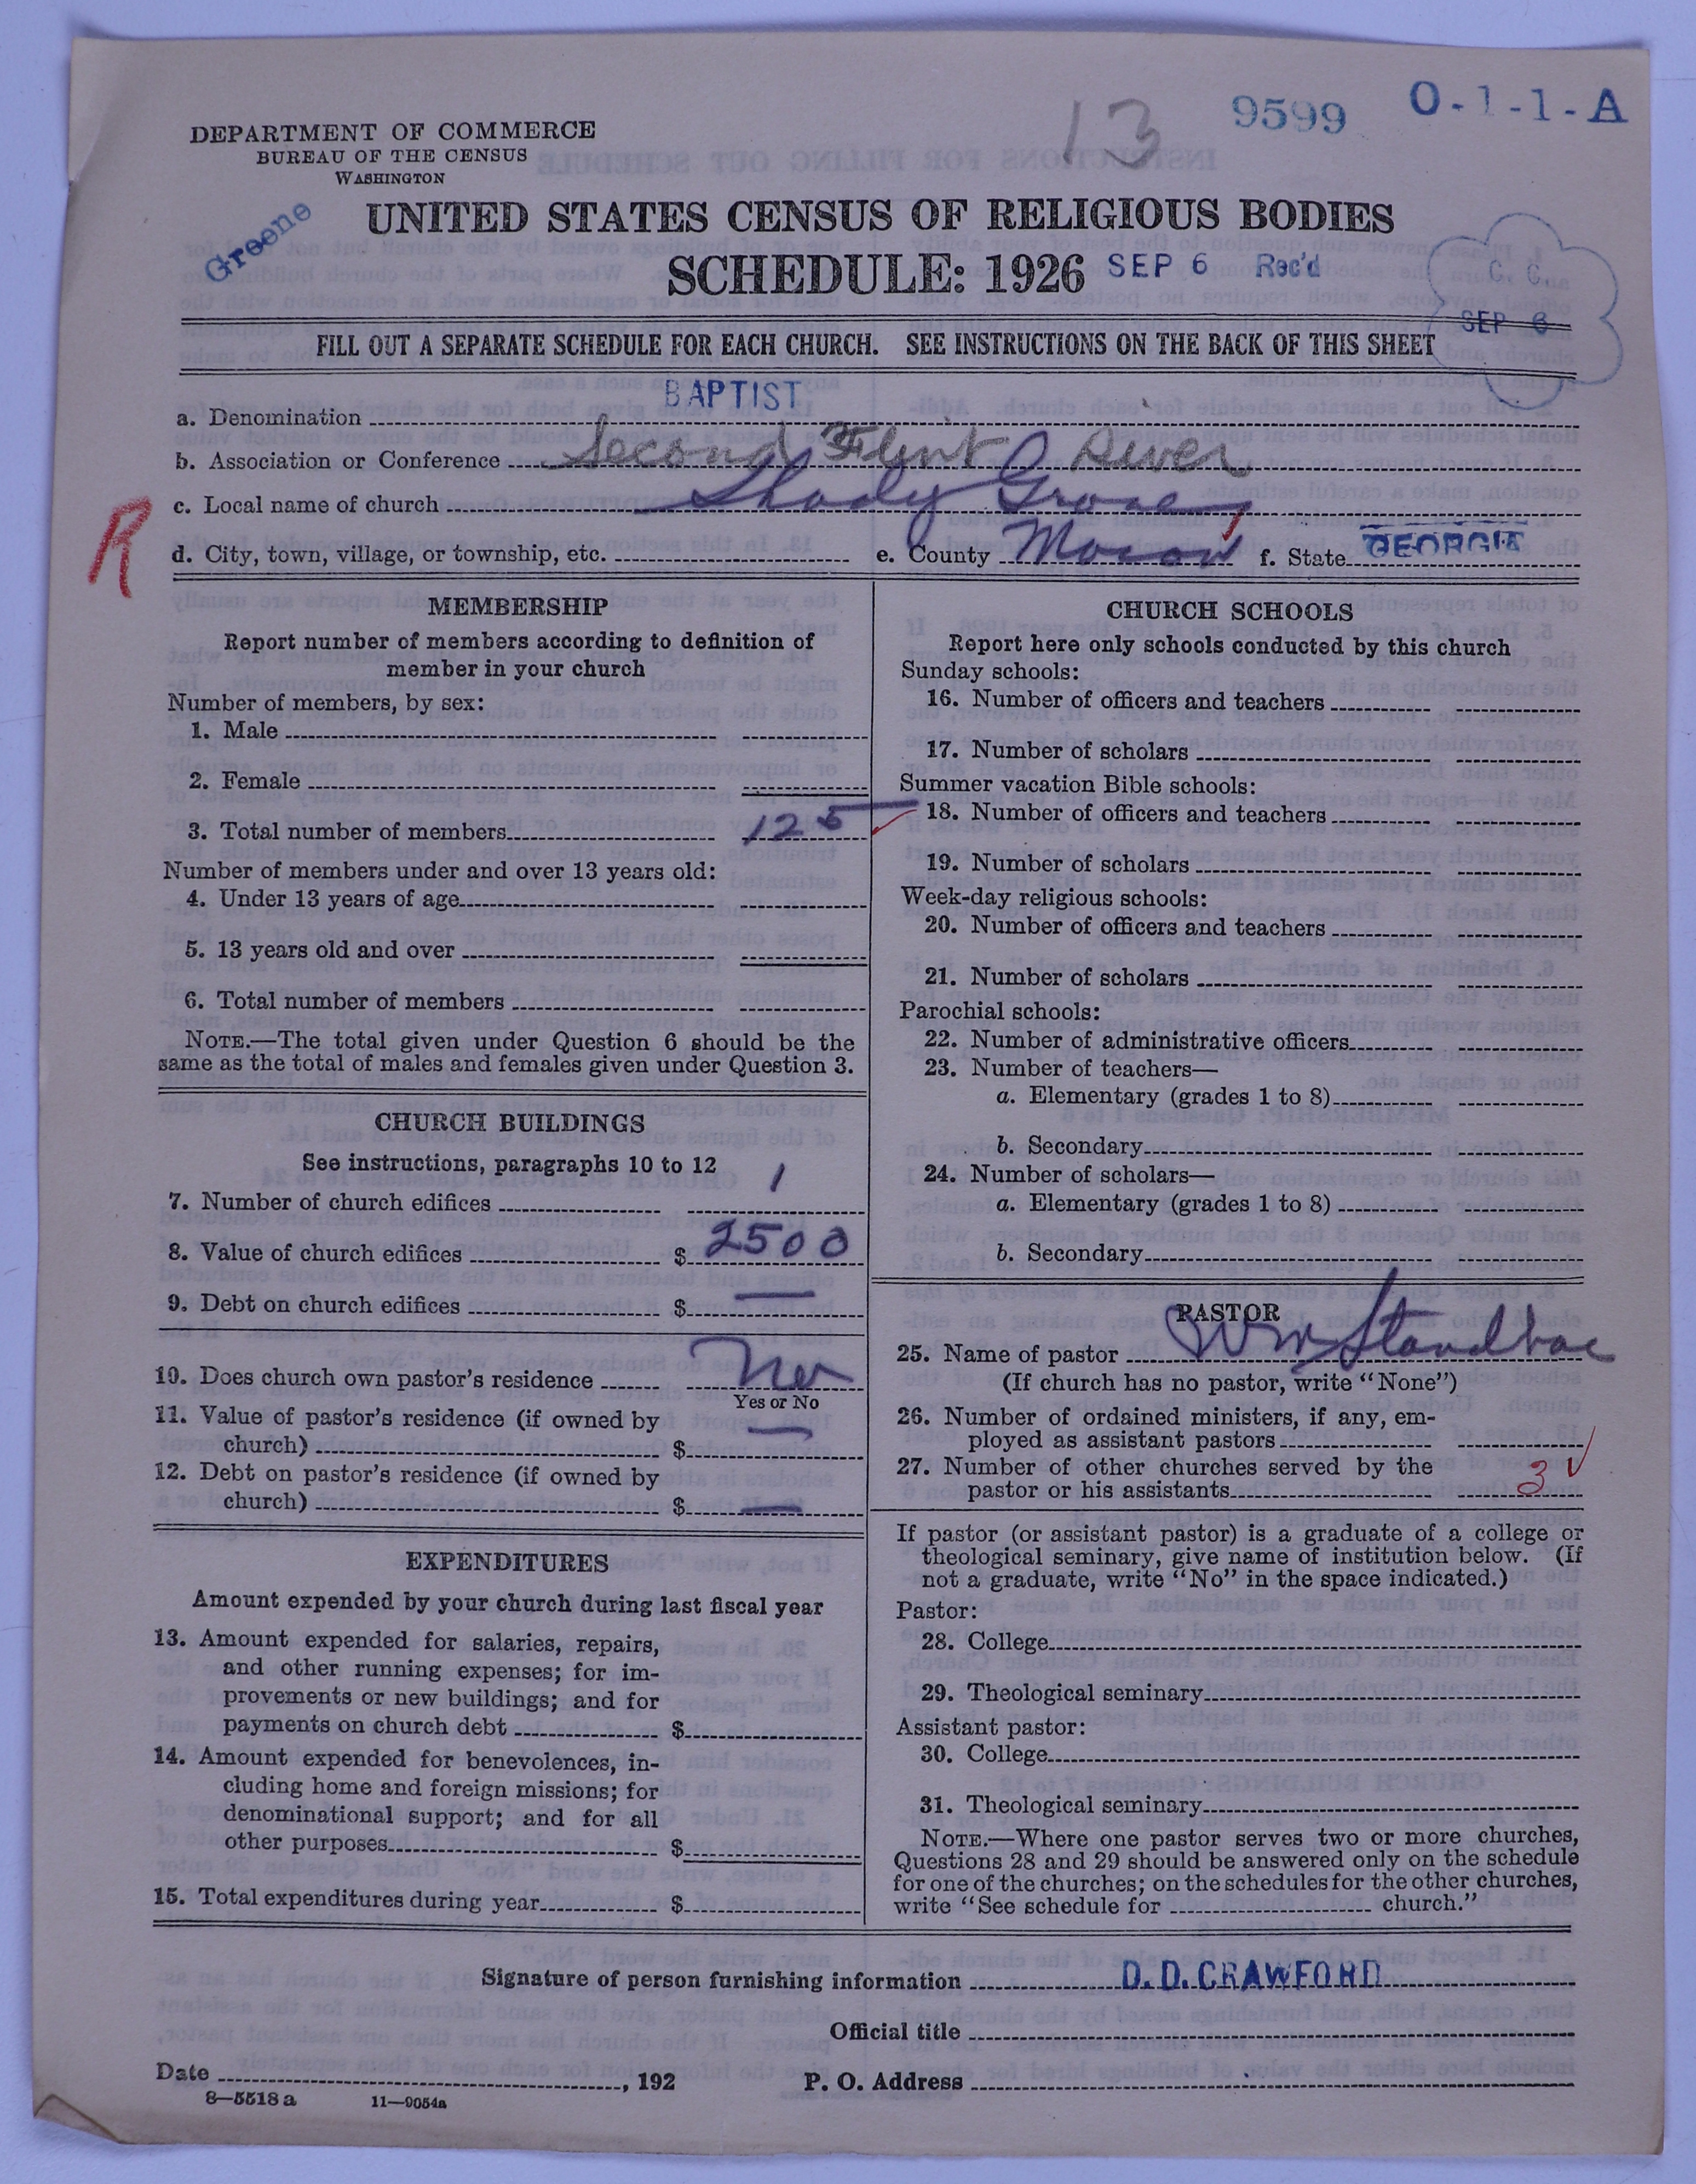 13 9599 O-1-1-A
DEPARTMENT OF COMMERCE
BUREAU OF THE CENSUS
WASHINGTON
Greene
UNITED STATES CENSUS OF RELIGIOUS BODIES
SCHEDULE: 1926 SEP 6 Rec'd
C. C.
SEP 6
FILL OUT A SEPARATE SCHEDULE FOR EACH CHURCH. SEE INSTRUCTIONS ON THE BACK OF THIS SHEET
a. Denomination BAPTIST
b. Association or Conference Second Flint River
c. Local name of church Shady Grove
R
d. City, town, village, or township, etc. e. County f. State GEORGIA
MEMBERSHIP
Report number of members according to definition of
member in your church
Number of members, by sex:
1. Male
2. Female
3. Total number of members 125
Number of members under and over 13 years old:
4. Under 13 years of age
5. 13 years old and over
6. Total number of members
NOTE.—The total given under Question 6 should be the
same as the total of males and females given under Question 3.
CHURCH BUILDINGS
See instructions, paragraphs 10 to 12
7. Number of church edifices 1
8. Value of church edifices $ 2500
9. Debt on church edifices $ —
10. Does church own pastor's residence
Yes or No
11. Value of pastor's residence (if owned by
church) $ —
12. Debt on pastor's residence (if owned by
church) $ —
EXPENDITURES
Amount expended by your church during last fiscal year
13. Amount expended for salaries, repairs,
and other running expenses; for im-
provements or new buildings; and for
payments on church debt $
14. Amount expended for benevolences, in-
cluding home and foreign missions; for
denominational support; and for all
other purposes $
15. Total expenditures during year $
CHURCH SCHOOLS
Report here only schools conducted by this church
Sunday schools:
16. Number of officers and teachers
17. Number of scholars
Summer vacation Bible schools:
18. Number of officers and teachers
19. Number of scholars
Week-day religious schools:
20. Number of officers and teachers
21. Number of scholars
Parochial schools:
22. Number of administrative officers
23. Number of teachers—
a. Elementary (grades 1 to 8)
b. Secondary
24. Number of scholars—
a. Elementary (grades 1 to 8)
b. Secondary
PASTOR
25. Name of pastor Wm
(If church has no pastor, write "None")
26. Number of ordained ministers, if any, em-
ployed as assistant pastors
27. Number of other churches served by the
pastor or his assistants 3
If pastor (or assistant pastor) is a graduate of a college or
theological seminary, give name of institution below. (If
not a graduate, write "No" in the space indicated.)
Pastor:
28. College
29. Theological seminary
Assistant pastor:
30. College
31. Theological seminary
NOTE.—Where one pastor serves two or more churches,
Questions 28 and 29 should be answered only on the schedule
for one of the churches; on the schedules for the other churches,
write "See schedule for church."
Signature of person furnishing information D. D. CRAWFORD
Official title
Date , 192 P. O. Address
8—5518 a 11—9054a